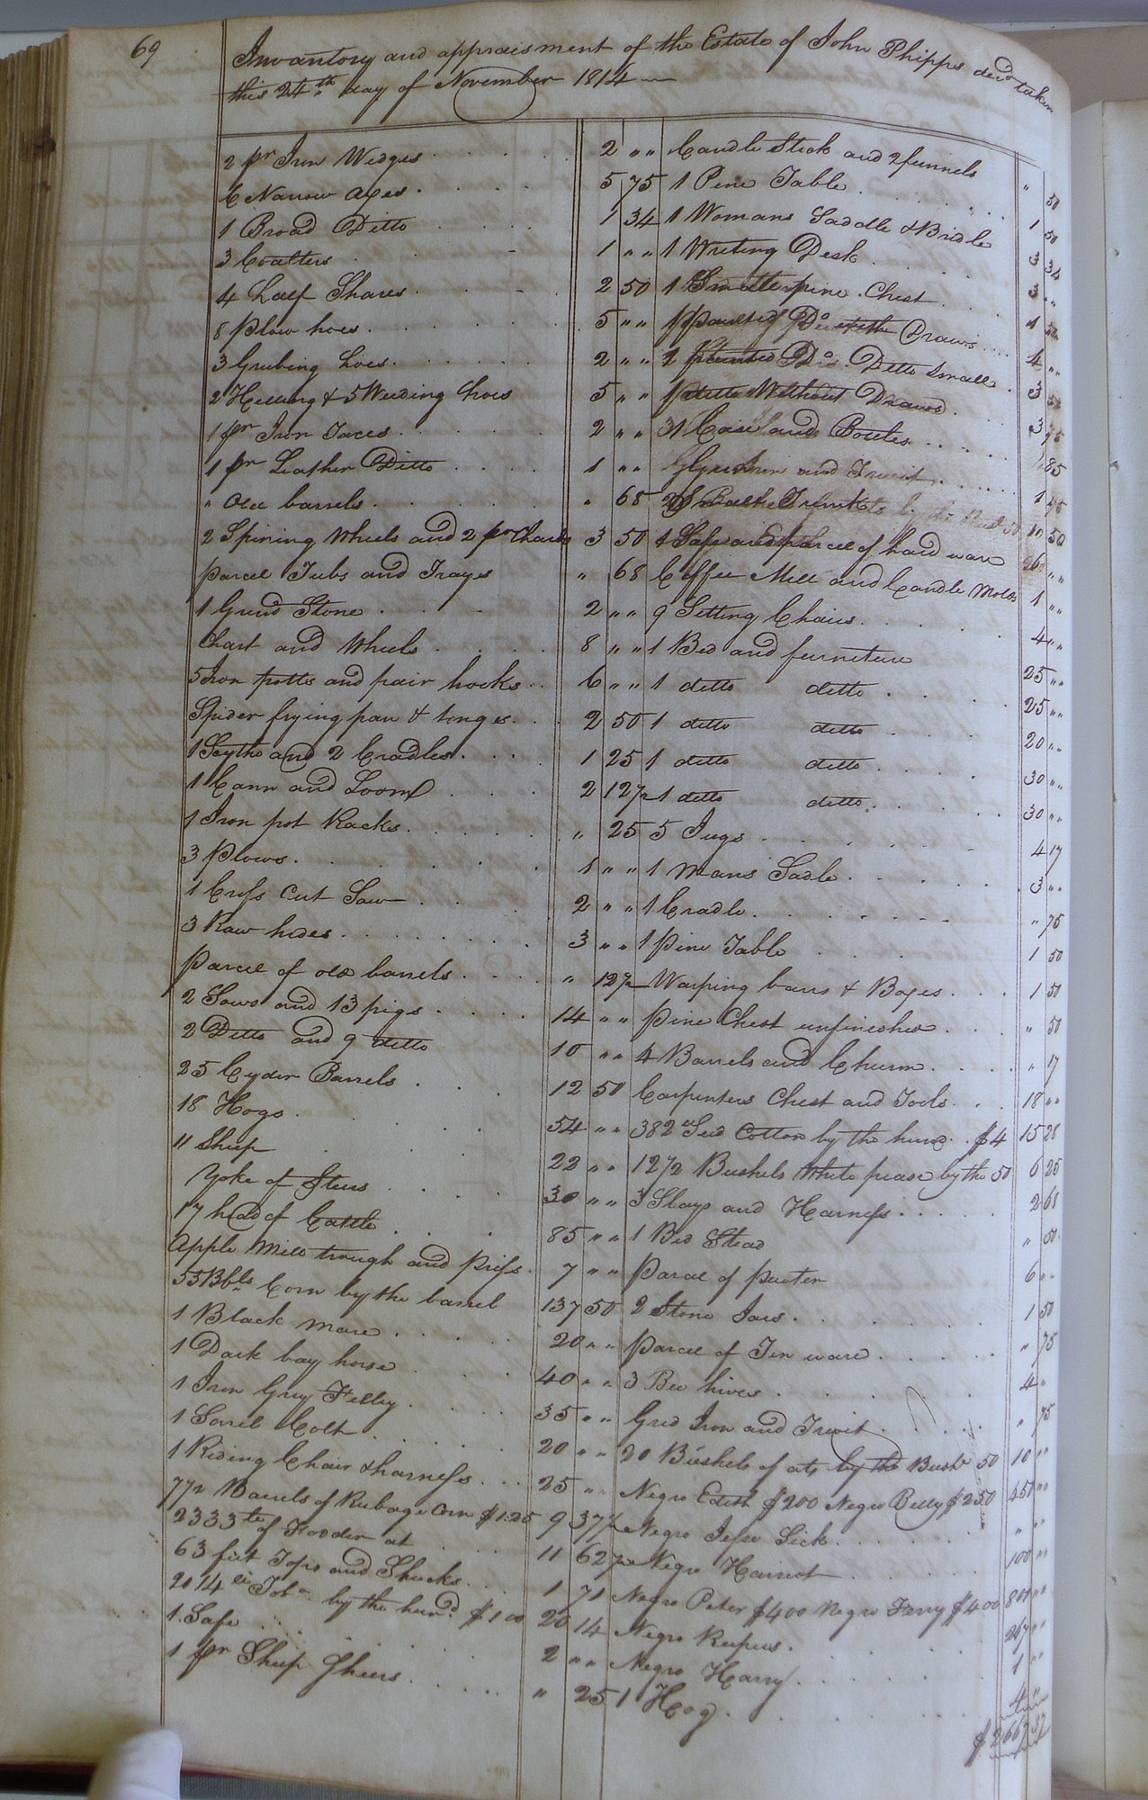 69
Inventory and appraisment of the Estate of John Phipps decd taken
this 24th day of November 1814
2 pr Iron Wedges 2 " "
6 Narrow axes 5 75
1 Broad Ditto 1 34
3 Coulters 1 " "
4 half Shares 2 50
8 plow hoes 5 " "
3 Grubing hoes 2 " "
2 Hilling & 5 Weeding hoes 5 " "
1 pr Iron Traces 2 " "
1 pr Leather Ditto 1 " "
" Old barrels " 68
2 Spining Wheels and 2 pr Chards 3 50
parcel Tubs and Trayes " 68
1 Grind Stone 2 " "
Chart and Wheels 8 " "
5 Iron potts and pair hooks 6 " "
Spider frying pan & tonges 2 50
1 Scythe and 2 Cradles 1 25
1 Cann and Loom 2 12 1/2
1 Iron pot Racks " 25
3 plows 1 " "
1 Cross Cut Saw 2 " "
3 Raw hides 3 " "
parcel of old barrels " 12 1/2
2 Sows and 13 pigs 14 " "
2 Ditto and 9 ditto 10 " "
25 Cyder Barrels 12 50
18 Hogs 54 " "
11 Sheep 22 " "
Yoke of Steers 30 " "
17 head of Cattle 85 " "
Apple Mill trough and press 7 " "
55 Bbls Corn by the barrel 137 50
1 Black Mare 20 " "
1 Dark bay horse 40 " "
1 Iron Grey Filley 35 " "
1 Sorrel Colt 20 " "
1 Riding Chair & harness 25 " "
7 1/2 Barrels of Rubage Corn $1.25 9 37 1/2
2333 lb of Fodder at 11 62 1/2
63 feet Tops and Shucks 1 71
2014 lb Tob° by the hund $1 00 20 14
1 Safe 2 " "
1 pr Sheep Shears " 25
Candle Stick and 2 funnels " 50
1 Pine Table 1 50
1 Womans Saddle & Bridle 3 34
1 Writing Desk 3 " "
1 Small pine Chest 1
Do Draws 4 " "
1 Do Ditto Small 3
1 ditto Without Draws 3 75
Case and Bottles 85
and Trivit 1
10 50
1 Safe and parcel of hard ware 26 " "
Coffee Mill and Candle Molds 1 " "
9 Setting Chairs 4 " "
1 Bed and furniture 25 " "
1 ditto ditto 25 " "
1 ditto ditto 20 " "
1 ditto ditto 30 " "
1 ditto ditto 30 " "
5 Jugs 4 17
1 Mans Sadle 3 " "
1 Cradle " 75
1 Pine Table 1 50
Warping bars & Boxes 1 50
pine Chest unfinished " 50
4 Barrels and Churn " 17
Carpenters Chest and Tools 18 " "
382 lb Seed Cotton by the hund $4 15 28
12 1/2 Bushels White pease by the 50 6 25
3 Slays and Harness 2 68
1 Bed Stead " 50
Parcel of puter 6 " "
2 Stone Jars 1 50
parcel of Tin ware " 75
3 Bee hives 4 "
Grid Iron and Trivit " 75
20 Bushels of ats by the Bush 50 10 " "
Negro Edith $200 Negro Billy $250 450 " "
Negro Jesse Sick " "
Negro Harriot 100 " "
Negro Peter $400 Negro Ferry $400 800 " "
Negro Rufus 267 " "
Negro Harry 1 " "
1 Hog 4 "